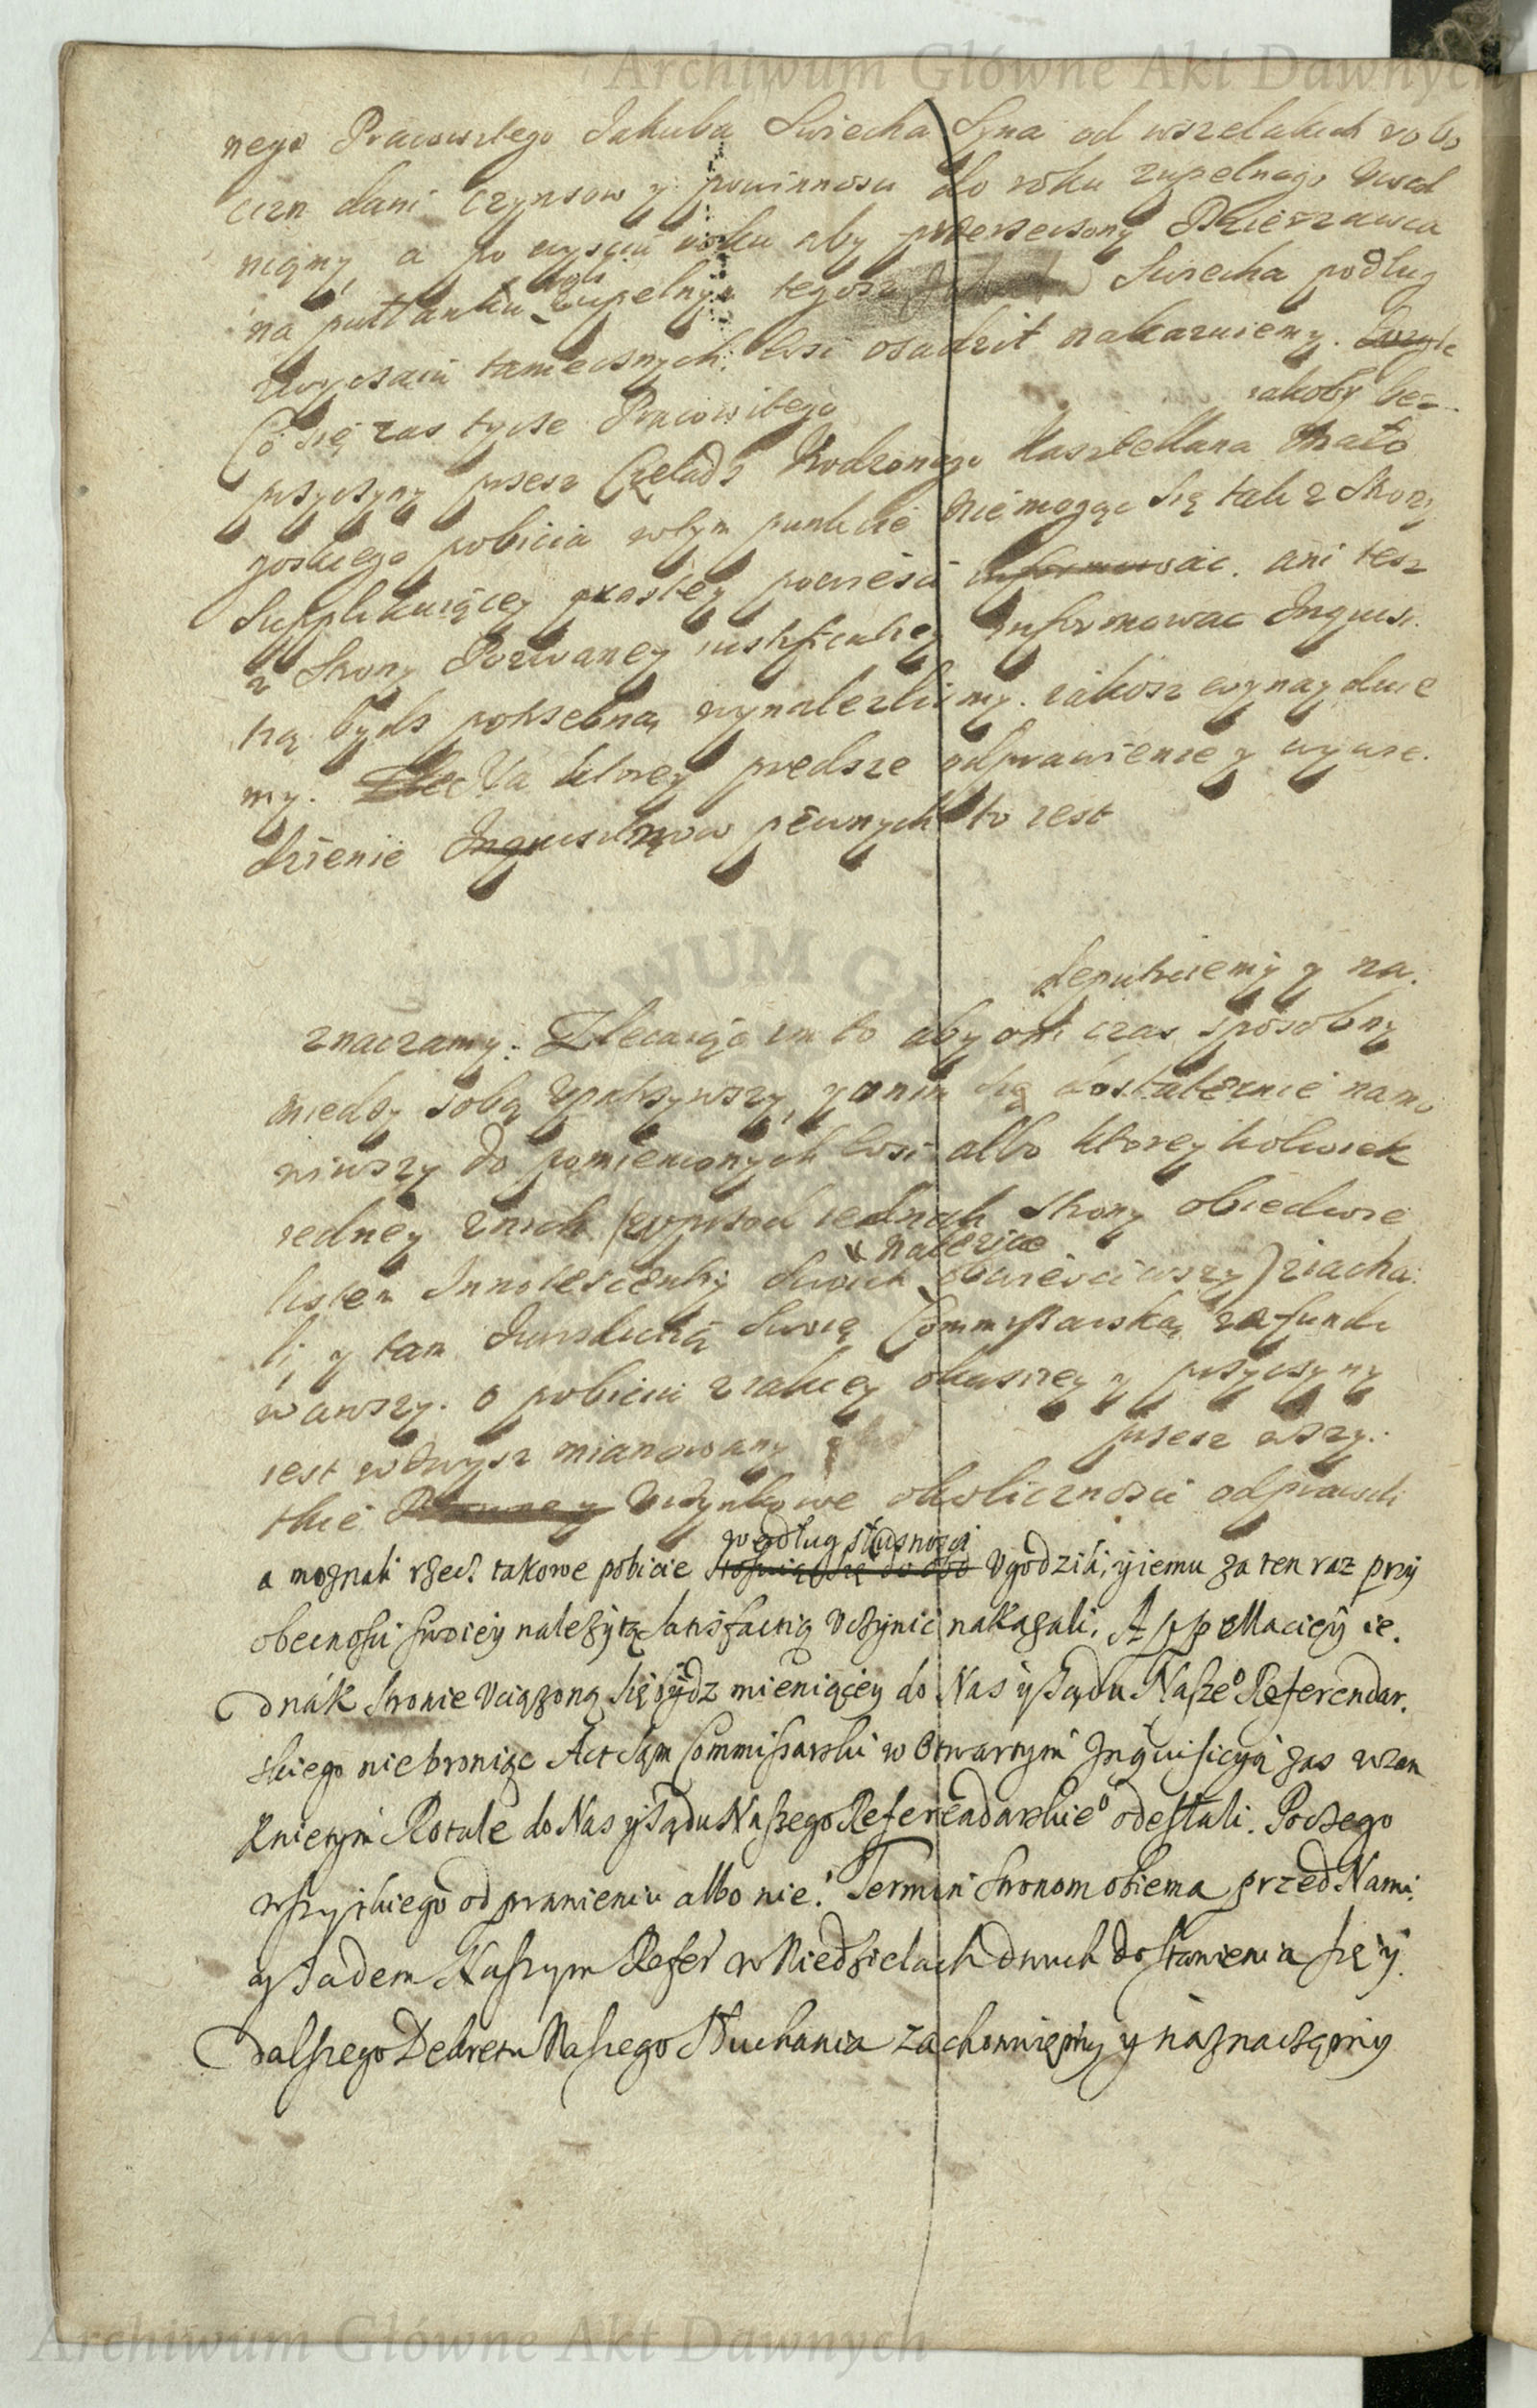 Archiwum Główne Akt Dawnych
nego Pracowitego Jakuba Swiecha Syna od wszelakich robo
cizn dani czynszow y powinnosci do roku zupelnego Uwol
niamy, a po wyisciu roku aby przerzeczony Dzierzawca
na pułłanku roli zupelnym tegosz Swiecha podług
zwyczaiu tamecznych Wsi osadził nakazuiemy.
Co się zas tycze Pracowitego iakoby bez
przyczyny przesz Czeladz Urodzonego Kasztellana Mało
goskiego pobicia wtym punkcie nie mogąc się tak z Strony
Supplikuiącey prostey powiesci informowac. ani tesz
z Strony Pozwaney iustyficatiey informowac Inquisi.
tią bydz potrzebną wynalezlismy. iakosz wynayduie
my. Na ktorey prędsze odprawienie y wywie.
dzienie pewnych to iest
deputuiemy y na.
znaczamy. Zlecaiąc im to aby oni czas sposobny
miedzy sobą upatrzywszy, y onim się dostatecznie namo
wiwszy do pomienionych Wsi albo ktoreykolwiek
iedney znich (wprzod iednak Strony obiedwie
należycie
listem Innotescentiy Swoich obwiesciwszy) ziacha.
li, y tam Jurisdictią Swoię Commissarską zafundo
wawszy. o pobiciu z iakiey okasiey y przyczyny
iest wzwysz mianowany przesz wszy.
tkie Uczynkowe okolicznosci odprawili
według słusznosci
a moznali rzecz takowe pobicie Ugodzili, y iemu za ten raz przy
obecnosci swoiey należytą satisfactią Uczynic nakazali, Appellaciey ie.
dnák stronie Uciązoną się bydz mieniącey do Nas y Sądu Nasze° Referendar.
skiego niebroniąc Act Sąm Commissarski w Otwartym Inquisicyą zas wzam
knietym Rotule do Nas y Sądu Naszego Referendarskie° odesłali. Poczego
wszystkiego odprawieniu albo nie. Termin stronom obiema przed Nami.
y Sadem Naszym Refer w Niedzielach dwuch do stawienia się y.
dalszego Dekretu Naszego słuchania zachowuiemy y náznaczamy
Archiwum Główne Akt Dawnych